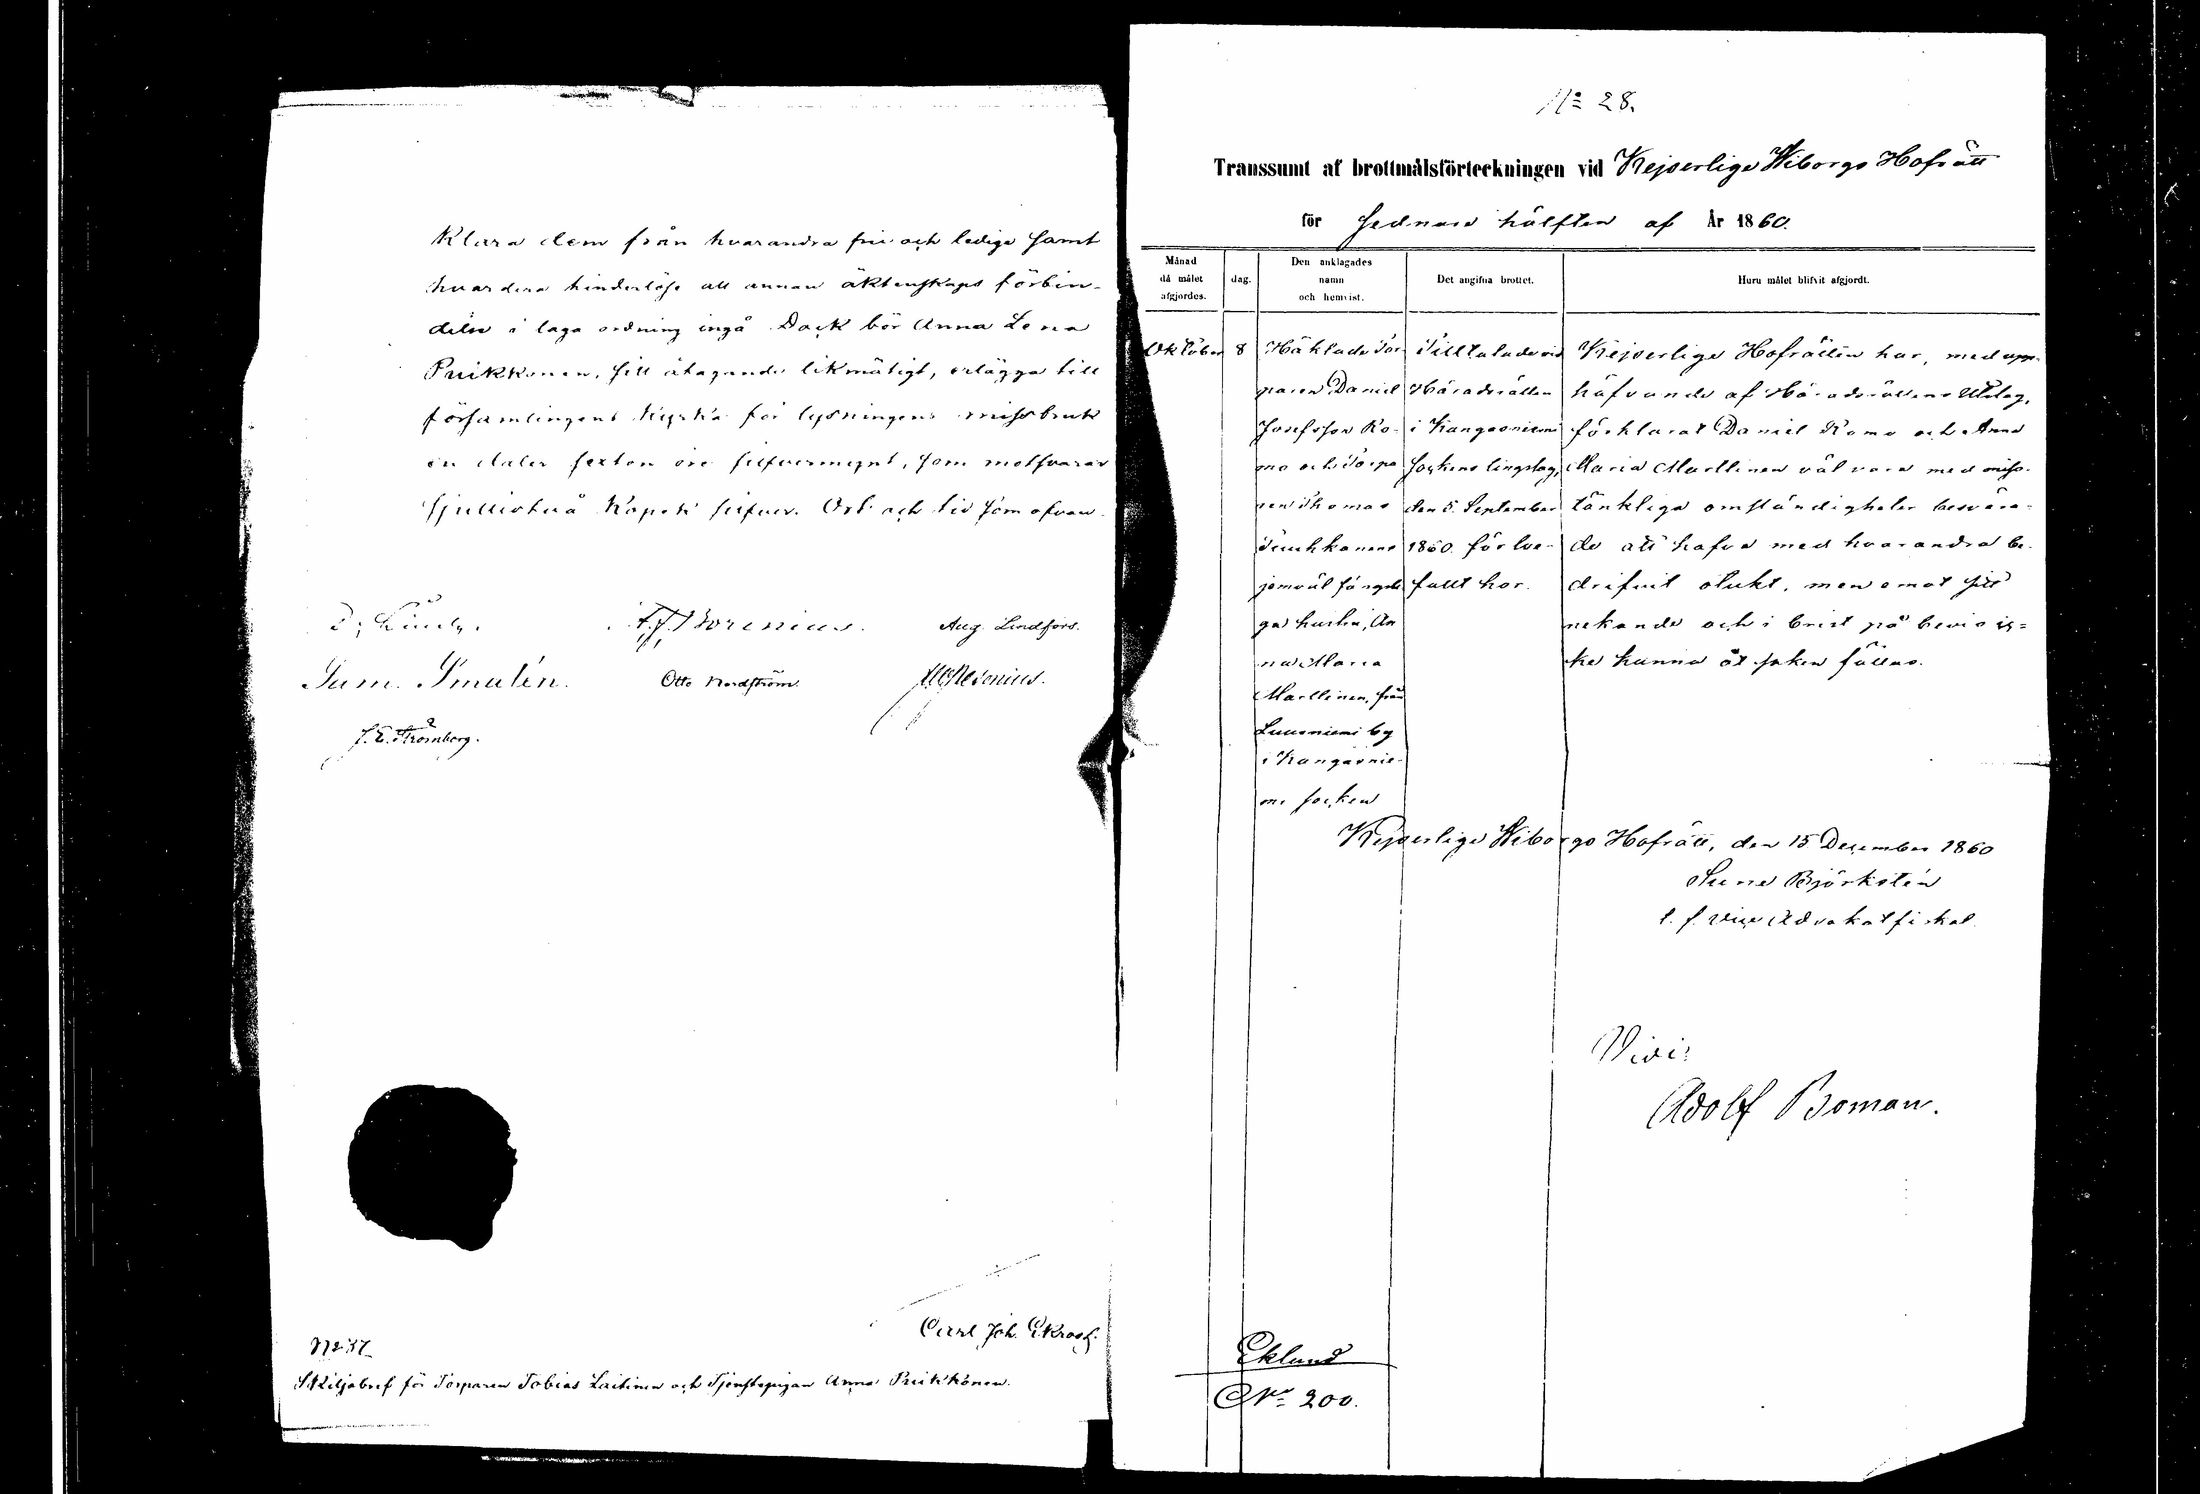 klara dem från hvarandra frie och ledige samt
hvardera hinderlöse att annan äktenskaps förbin-
delse i laga ordning ingå. Dock bör Anna Lena
Puikkonen, sitt åtagande likmätigt, erlägga till
församlingens kyrka för lysningens missbruk
en daler sexton öre silfvermynt, som motsvarar
sjuttiotvå kopek silfver. Ort och tid som ofvan.
Aug. Lindfors.
Sam. Smalén.
Otto Nordström.
J. E. Strömberg.
Carl Joh. Ekroos.
No 37
Skiljobref för Torparen Tobias Laitinen och Tjenstepigan Anna Puikkonen.
No 28.
Transsumt af brottmålsförteckningen vid Kejserliga Wiborgs Hofrätt
för sednare hälften af År 1860.
Månad
då målet
afgjordes.
dag.
Den anklagades
namn
och hemvist.
Det angifna brottet.
Huru målet blifvit afgjordt.
Oktober
8
Häktade Tor-
paren Daniel
Josefsson Ro-
mo och Torpa-
ren Thomas
jemväl fängsli-
ga hustru, An-
na Maria
Marttinen, från
Luusniemi by
i Kangasnie-
mi socken
Tilltalade vid
Häradsrätten
i Kangasniemi
sockens tingslag,
den 5 September
1860 för lve-
fallt hor.
Kejserliga Hofrätten har, med upp-
häfvande af Häradsrättens Utslag,
förklarat Daniel Romo och Anna
Maria Marttinen väl vara med miss-
tänkliga omständigheter besvära-
de att hafva med hvarandra be-
drifvit otukt, men emot sitt
nekande och i brist på bevis ic-
ke kunna åt saken fällas.
Kejserliga Wiborgs Hofrätt, den 15 December 1860
Sune Björkstén
t. f. vice Advokatfiskal.
Vidi:
Adolf Boman.
Eklund
No 200.